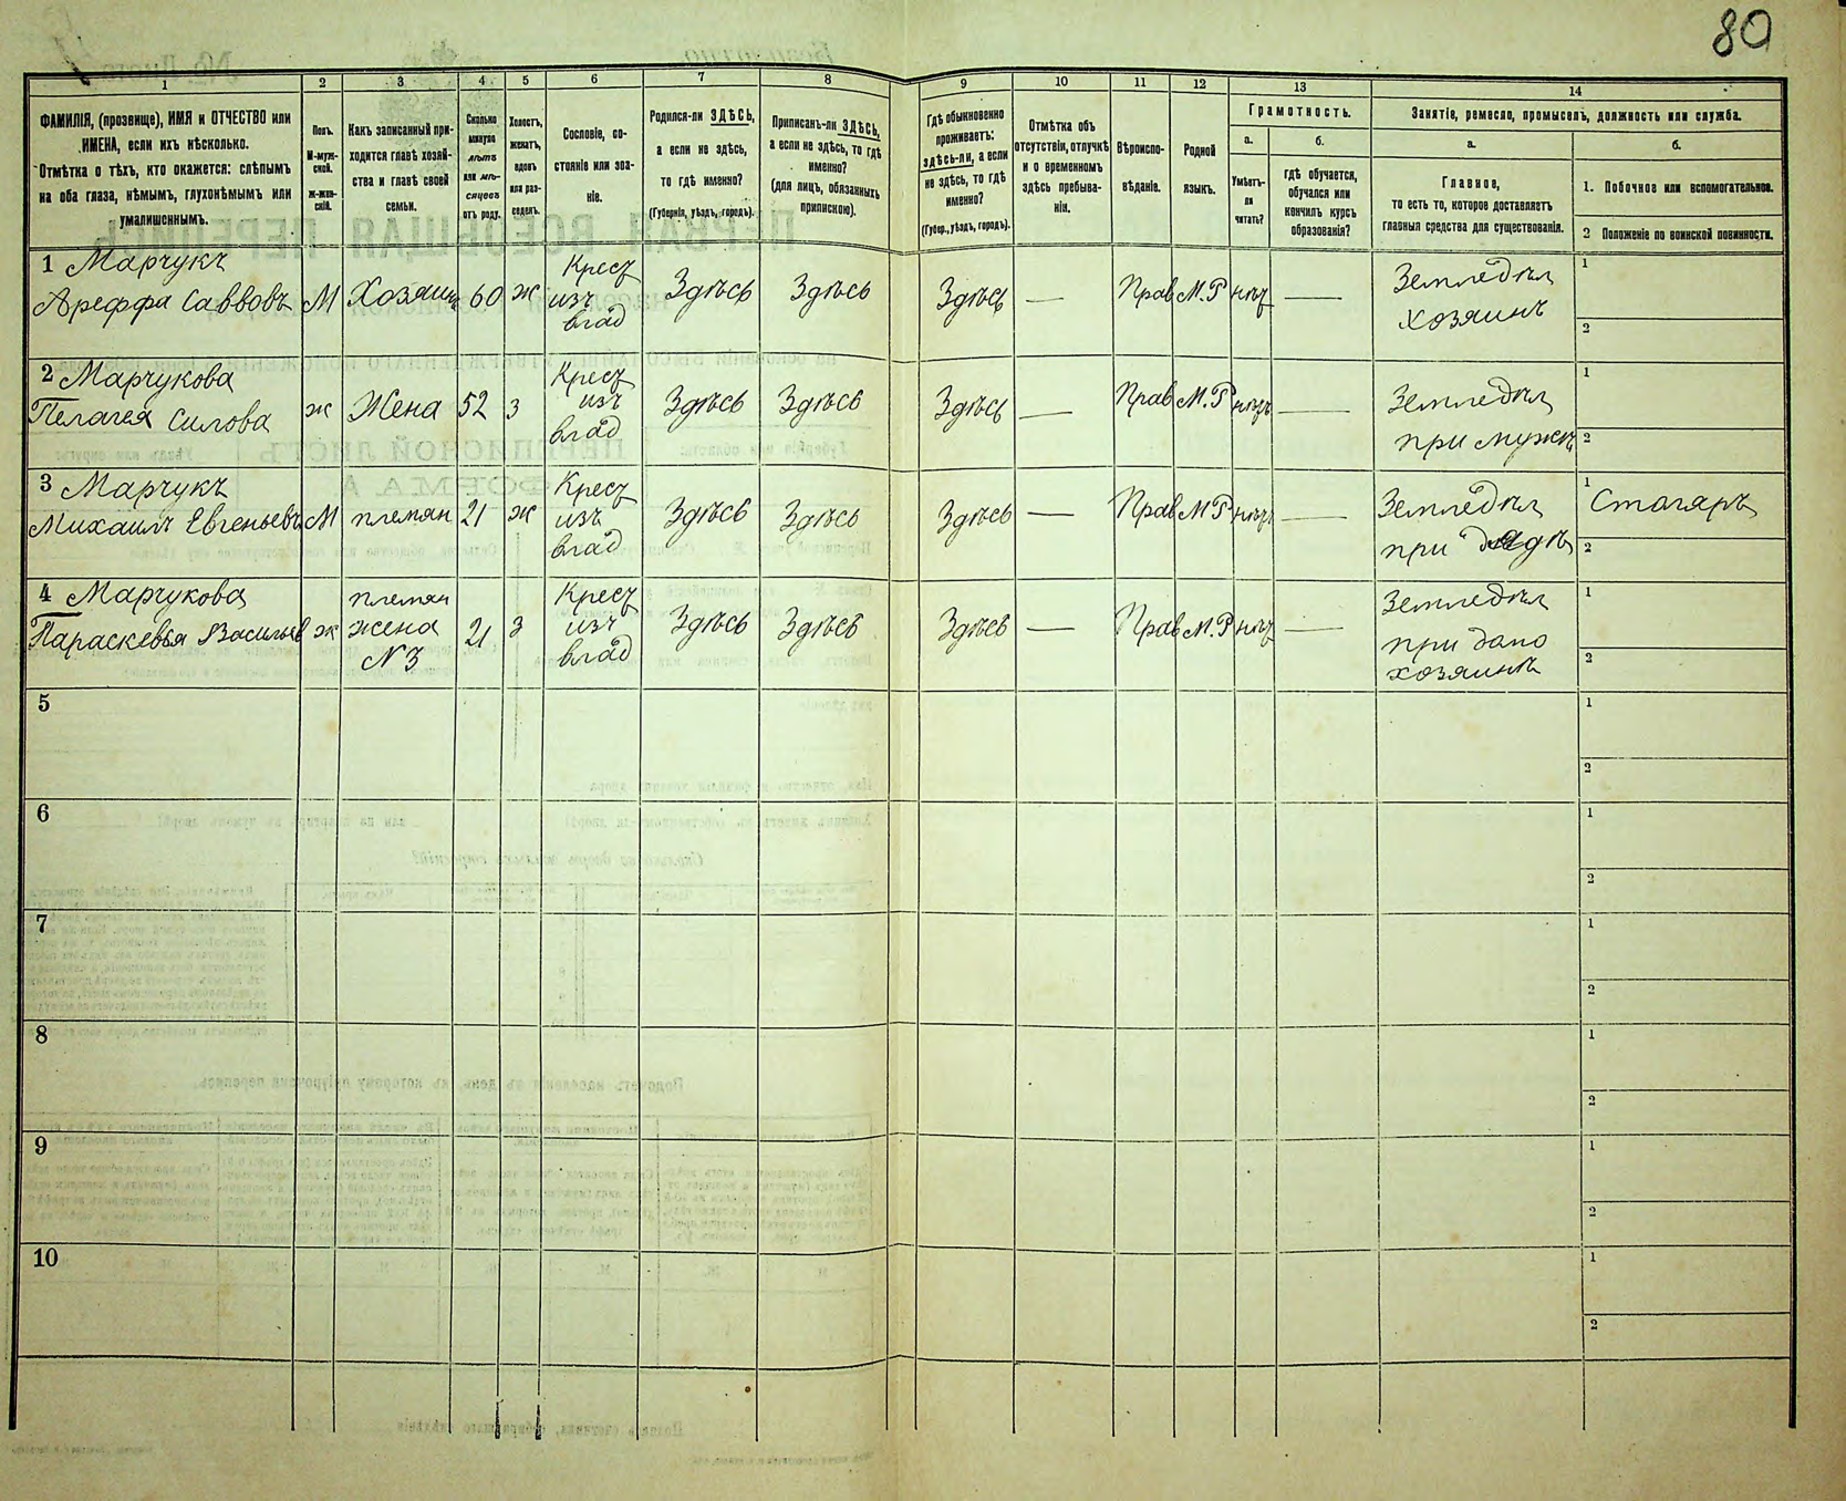 80
1 2 3 4 5 6 7 8 9 10 11 12 13 14
ФАМИЛІЯ, (прозвище), ИМЯ и ОТЧЕСТВО или
ИМЕНА, если ихъ нѣсколько.
Отмѣтка о тѣхъ, кто окажется: слѣпымъ
на оба глаза, нѣмымъ, глухонѣмымъ или
умалишеннымъ.
Полъ.
М-муж-
ской.
Ж-жен-
скій.
Какъ записанный при-
ходится главѣ хозяй-
ства и главѣ своей
семьи.
Сколько
минуло
лѣтъ
или мѣ-
сяцевъ
отъ роду.
Холостъ,
женатъ,
вдовъ
или раз-
веденъ.
Сословіе, со-
стояніе или зва-
ніе.
Родился-ли ЗДѢСЬ,
а если не здѣсь,
то гдѣ именно?
(Губернія, уѣздъ, городъ).
Приписанъ-ли ЗДѢСЬ,
а если не здѣсь, то гдѣ
именно?
(для лицъ, обязанныхъ
припискою).
Гдѣ обыкновенно
проживаетъ:
здѣсь-ли, а если
не здѣсь, то гдѣ
именно?
(Губер., уѣздъ, городъ).
Отмѣтка объ
отсутствіи, отлучкѣ
и о временномъ
здѣсь пребыва-
ніи.
Вѣроиспо-
вѣданіе.
Родной
языкъ.
Грамотность.
а.
Умѣетъ-
ли
читать?
б.
гдѣ обучается,
обучался или
кончилъ курсъ
образованія?
Занятіе, ремесло, промыселъ, должность или служба.
а.
Главное,
то есть то, которое доставляетъ
главныя средства для существованія.
б.
1. Побочное или вспомогательное.
2 Положеніе по воинской повинности.
1 Марчукъ
Ареффа Саввовъ М Хозяинъ 60 ж Крест изъ влад Здѣсь Здѣсь Здѣсь — Прав М.Р нѣт — Земледѣл хозяинъ 1
2
2 Марчукова
Пелагея Силова ж Жена 52 З Крест изъ влад Здѣсь Здѣсь Здѣсь — Прав М.Р нѣт — Земледѣл при мужѣ 1
2
3 Марчукъ
Михаилъ Евгеньевъ М племян 21 ж Крест изъ влад Здѣсь Здѣсь Здѣсь — Прав М Р нѣт — Земледѣл при дядѣ 1 Столяръ
2
4 Марчукова
Параскевья Васильев ж племян жена N3 21 З Крест изъ влад Здѣсь Здѣсь Здѣсь — Прав М.Р нѣт — Земледѣл при хозяинѣ 1
2
5 1
2
6 1
2
7 1
2
8 1
2
9 1
2
10 1
2